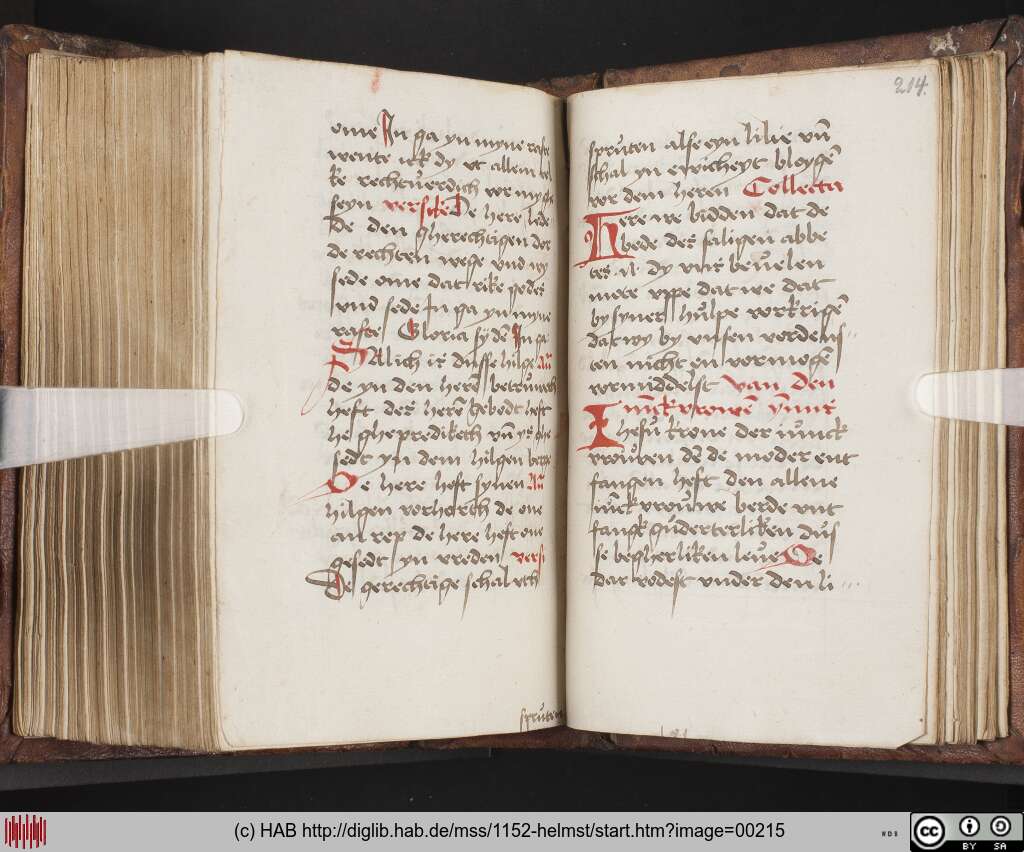 ome In ga yn myne raste
wente ik dy vt allem
ke rechtuerdich vor my
seyn versike De here lede
de den gherechtigen der
de rechten wege vnd wy
sede ome dat rike godes
vnd sede In ga yn myne
raste Gloria syden In ga
Salich is dusse hilge An
de yn den heren betruwen
heft des heren gebodt heft
he gheprediketh vnd ys ghe
sedt yn dem hilgen berge
De here heft synen An
hilgen vorhorth de one
an rep de here heft one
gesedt yn vreden versi
De gerechtige schal vth
spruten
214.
spruten alse eyn lilie vn̄
schal yn ewicheyt bloygē
vor dem heren Collecta
Here we bidden dat de
bede des saligen abbe
tes .n. dy vns beuelen
mote vppe dat we dat
by syner hulpe vorkrigē
dat wy by vnsen vordens
ten nicht en vormogē
vormiddelst van den
iunckvrowē ymnus
Ihesu krone der iunck
vrouwen dē de moder ent
fangen heft den allene
iunckvrouwe berde vnt
fangk guderterliken dus
se begherliken leue De
dar wedest vnder den li
(c) HAB http://diglib.hab.de/mss/1152-helmst/start.htm?image=00215
WDB
cc BY SA